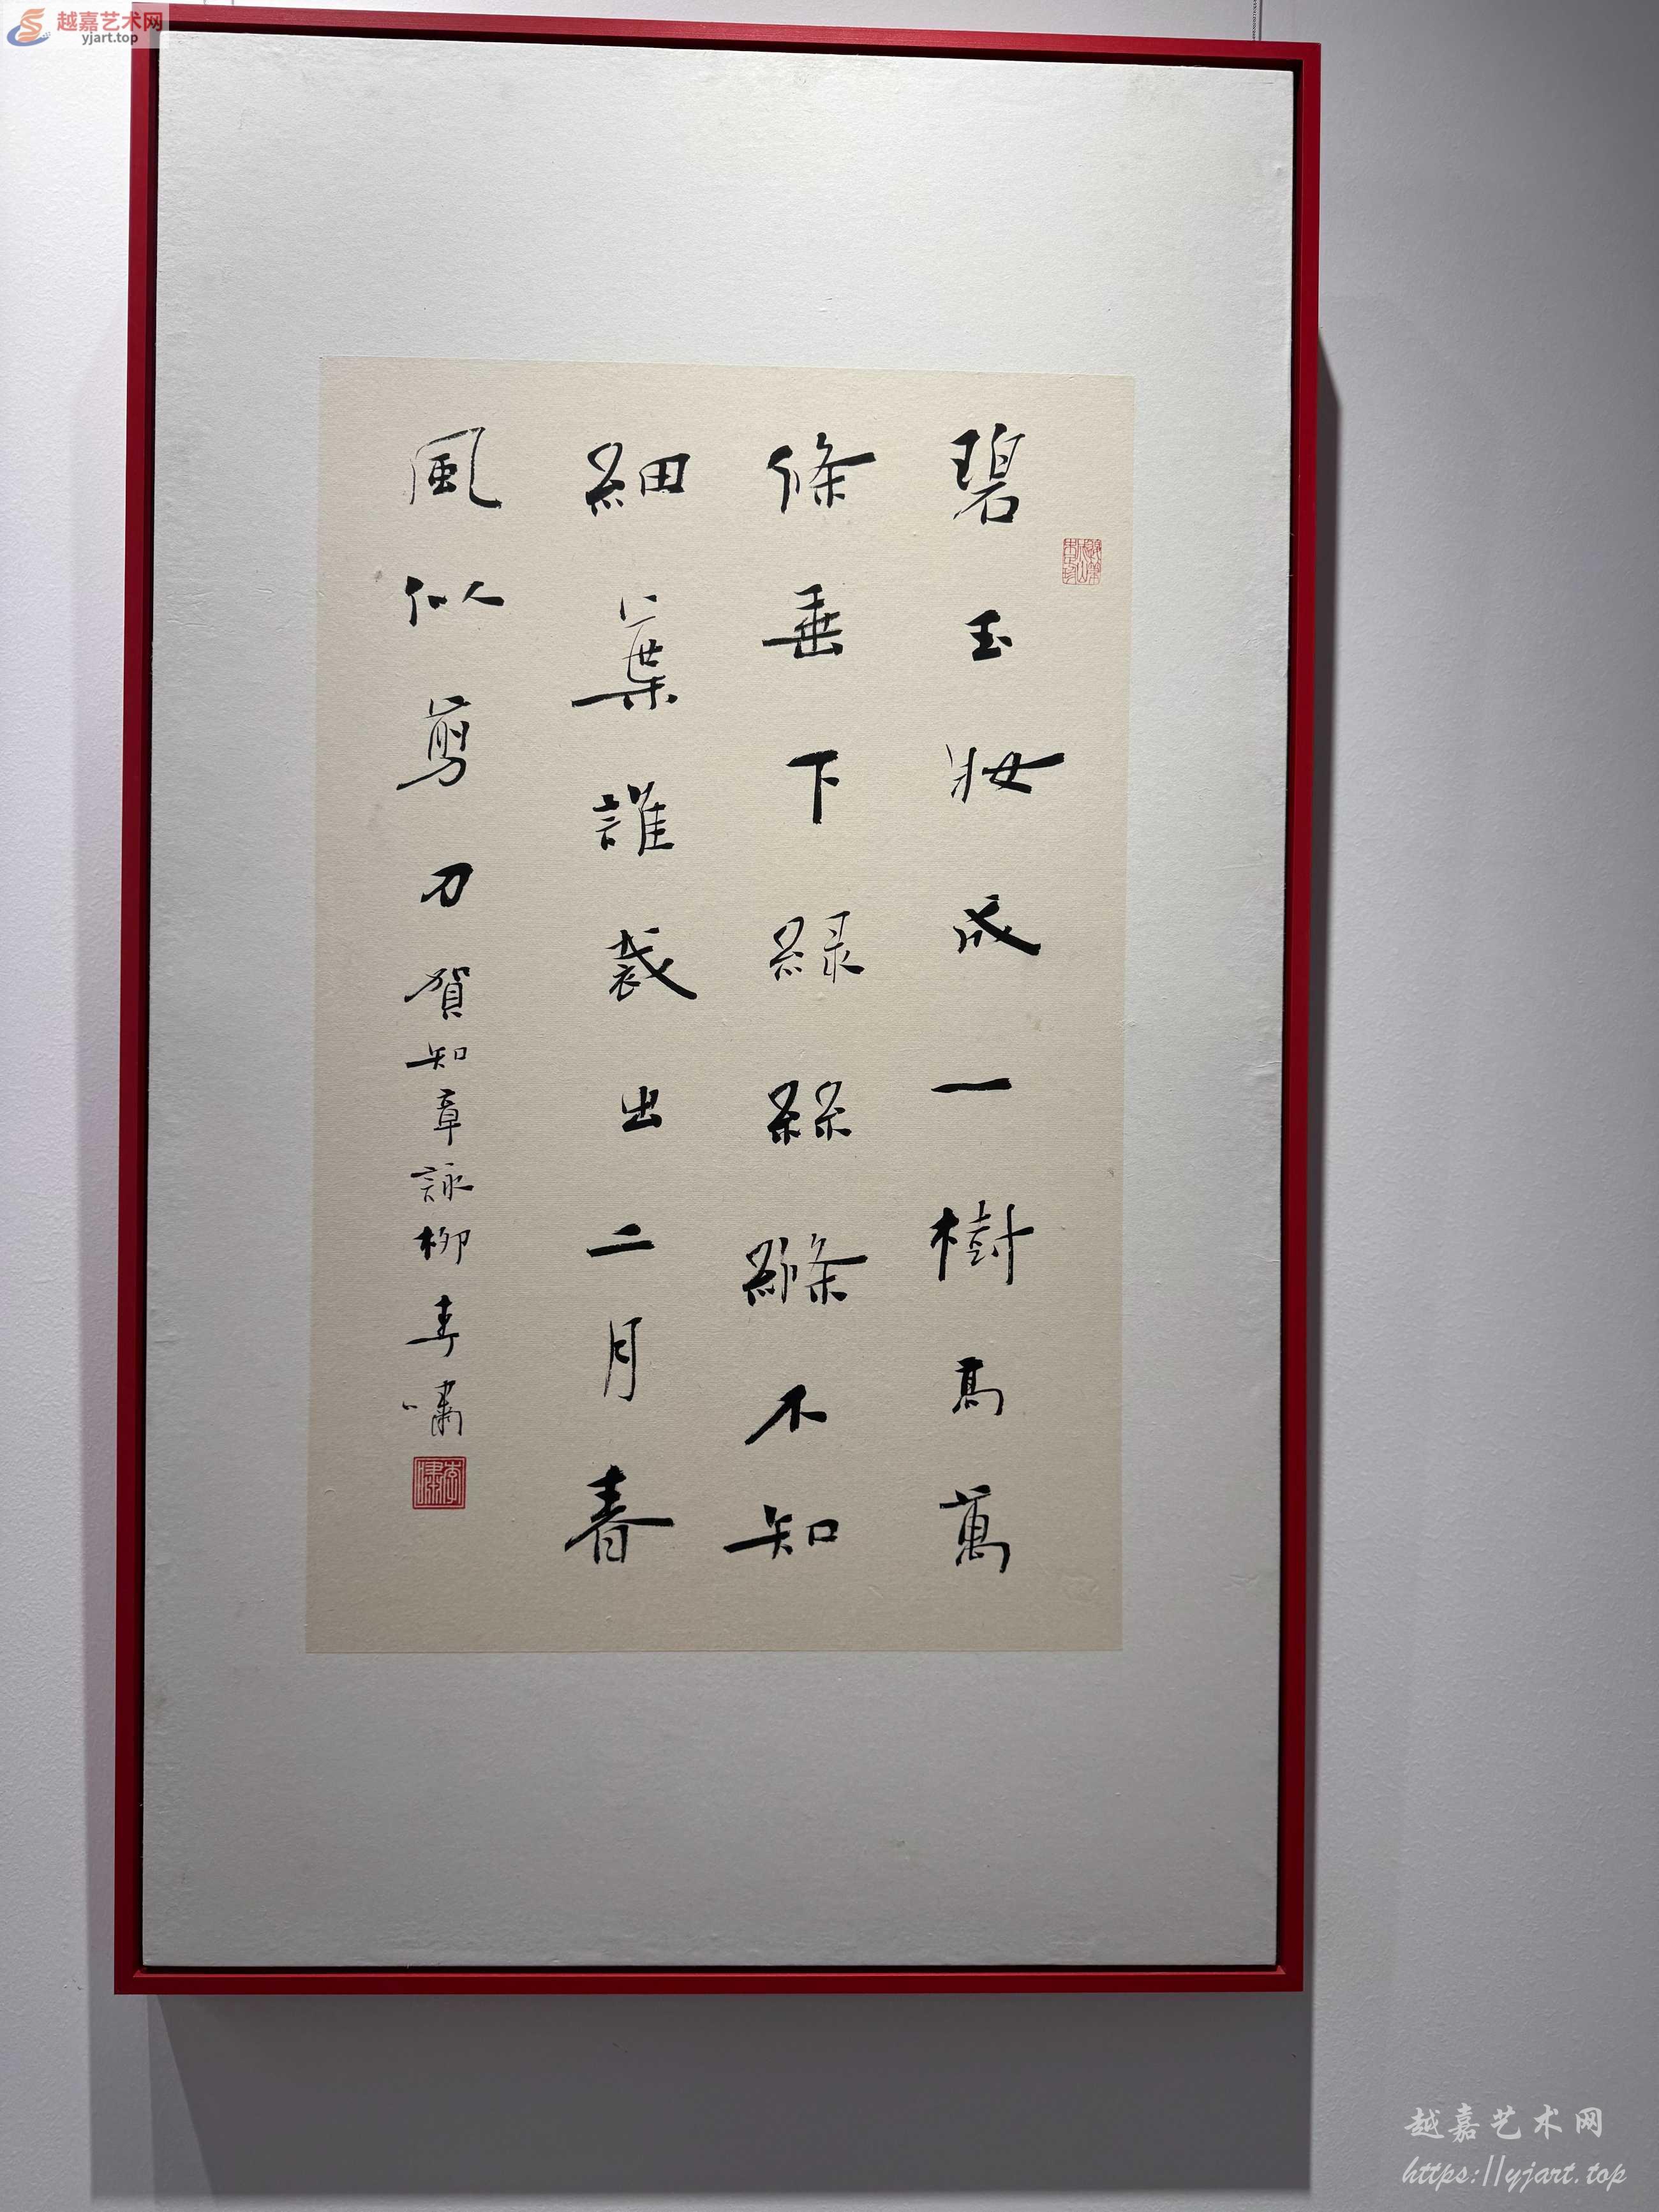 越嘉艺术网
yjart.top
碧玉妝成一樹高萬
條垂下緑絲縧不知
細葉誰裁出二月春
風似剪刀賀知章詠柳李嘯
李嘯
越嘉艺术网
https://yjart.top